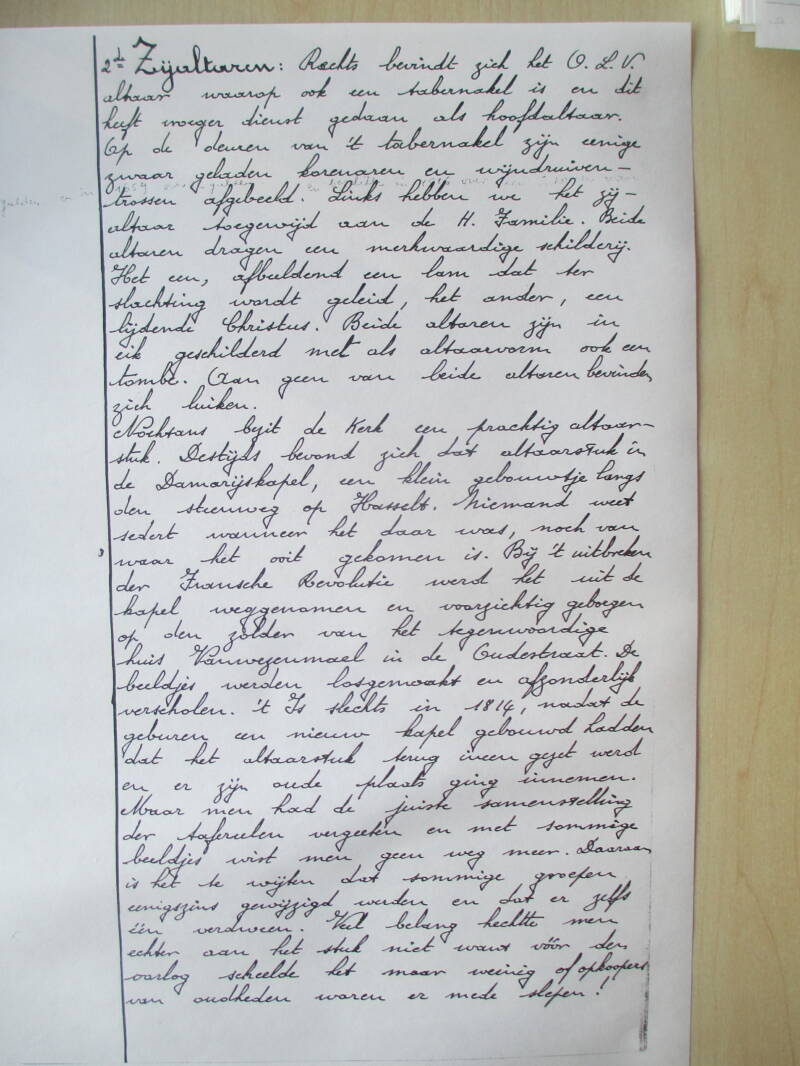 2d Zijaltaren: Rechts bevindt zich het O. L. V.
altaar waarop ook een tabernakel is en dit
heeft vroeger dienst gedaan als hoofdaltaar.
Op de deuren van 't tabernakel zijn eenige
zwaar geladen korenaren en wijndruiven-
trossen afgebeeld. Links hebben we het zij-
altaar toegewijd aan de H. Familie. Beide
altaren dragen een merkwaardige schilderij.
Het een, afbeeldend een lam dat ter
slachting wordt geleid, het ander, een
lijdende Christus. Beide altaren zijn in
eik geschilderd met als altaarvorm ook een
tombe. Aan geen van beide altaren bevinden
zich luiken.
Nochtans bezit de Kerk een prachtig altaar-
stuk. Destijds bevond zich dat altaarstuk in
de Damarijskapel, een klein gebouwtje langs
den steenweg op Hasselt. Niemand weet
sedert wanneer het daar was, noch van
waar het ooit gekomen is. Bij 't uitbreken
der Fransche Revolutie werd het uit de
kapel weggenomen en voorzichtig geborgen
op den zolder van het tegenwoordige
huis Vanwezenmael in de Oudestraat. De
beeldjes werden losgemaakt en afzonderlijk
verscholen. 't Is slechts in 1814, nadat de
geburen een nieuw kapel gebouwd hadden
dat het altaarstuk terug ineen gezet werd
en er zijn oude plaats ging innemen.
Maar men had de juiste samenstelling
der tafereelen vergeten en met sommige
beeldjes wist men geen weg meer. Daaraan
is het te wijten dat sommige groepen
eenigszins gewijzigd werden en dat er zelfs
één verdween. Veel belang hechtte men
echter aan het stuk niet want vóór den
oorlog scheelde het maar weinig of opkoopers
van oudheden waren er mede slepen!